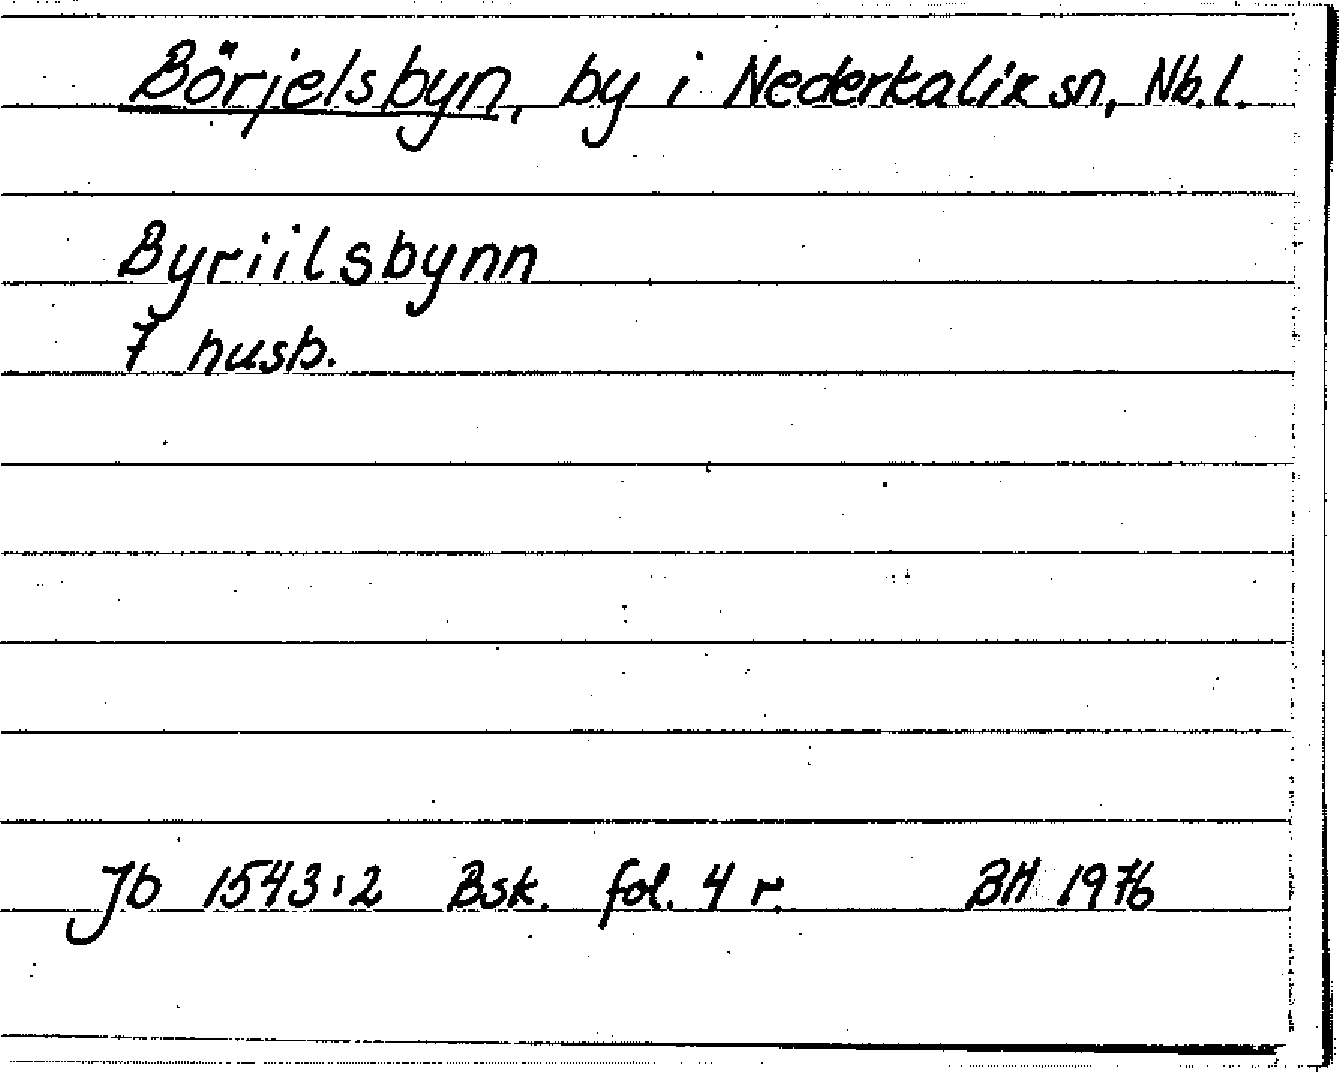 Börjelsbyn, by i Nederkalix sn, Nb.l.
Byriilsbynn
7 husb.
Jb 1543:2 Bsk. fol. 4 r. BH 1976